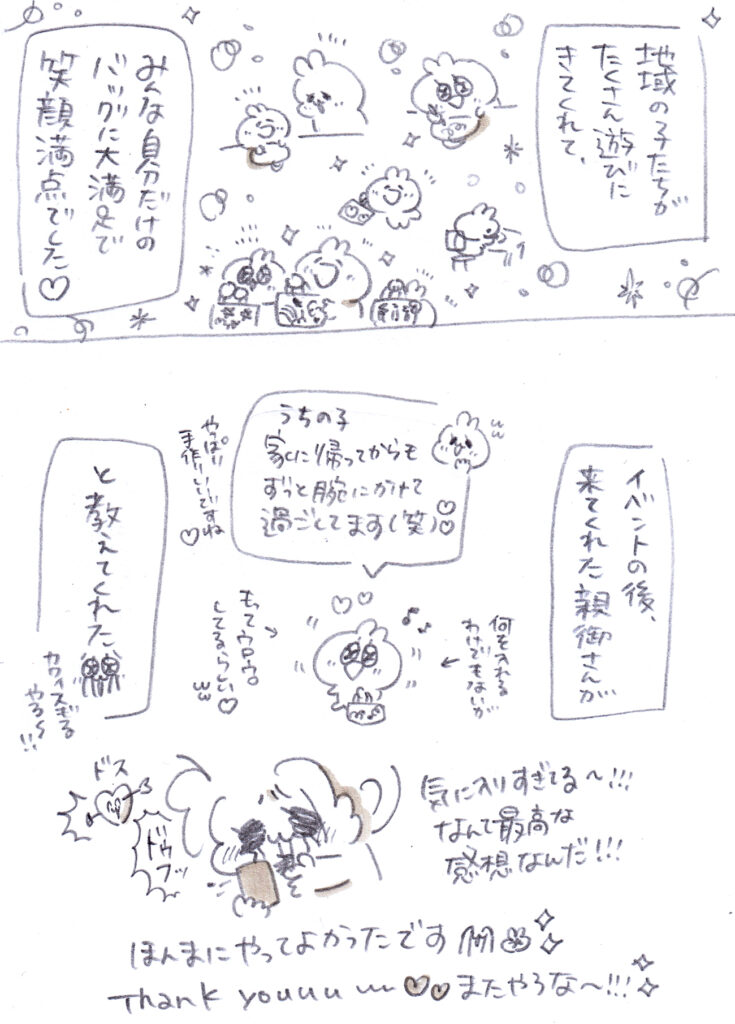 地域の子たちが
たくさん遊びに
きてくれて、
みんな自分だけの
バッグに大満足で
笑顔満点でした♡
イベントの後、
来てくれた親御さんが
うちの子
家に帰ってからも
ずっと腕にかけて
過ごしてます(笑)♡
やっぱり
手作りいいですね♡
何を入れる
わけでもないが
もってウロウロ
してるらしい♡
ww
と教えてくれた
カワイスギる
やろ〜!!
ドス
ドゥフッ
気に入りすぎてる〜!!!
なんて最高な
感想なんだ!!!
ほんまにやってよかったです
Thank youuu ♡♡またやろな〜!!!